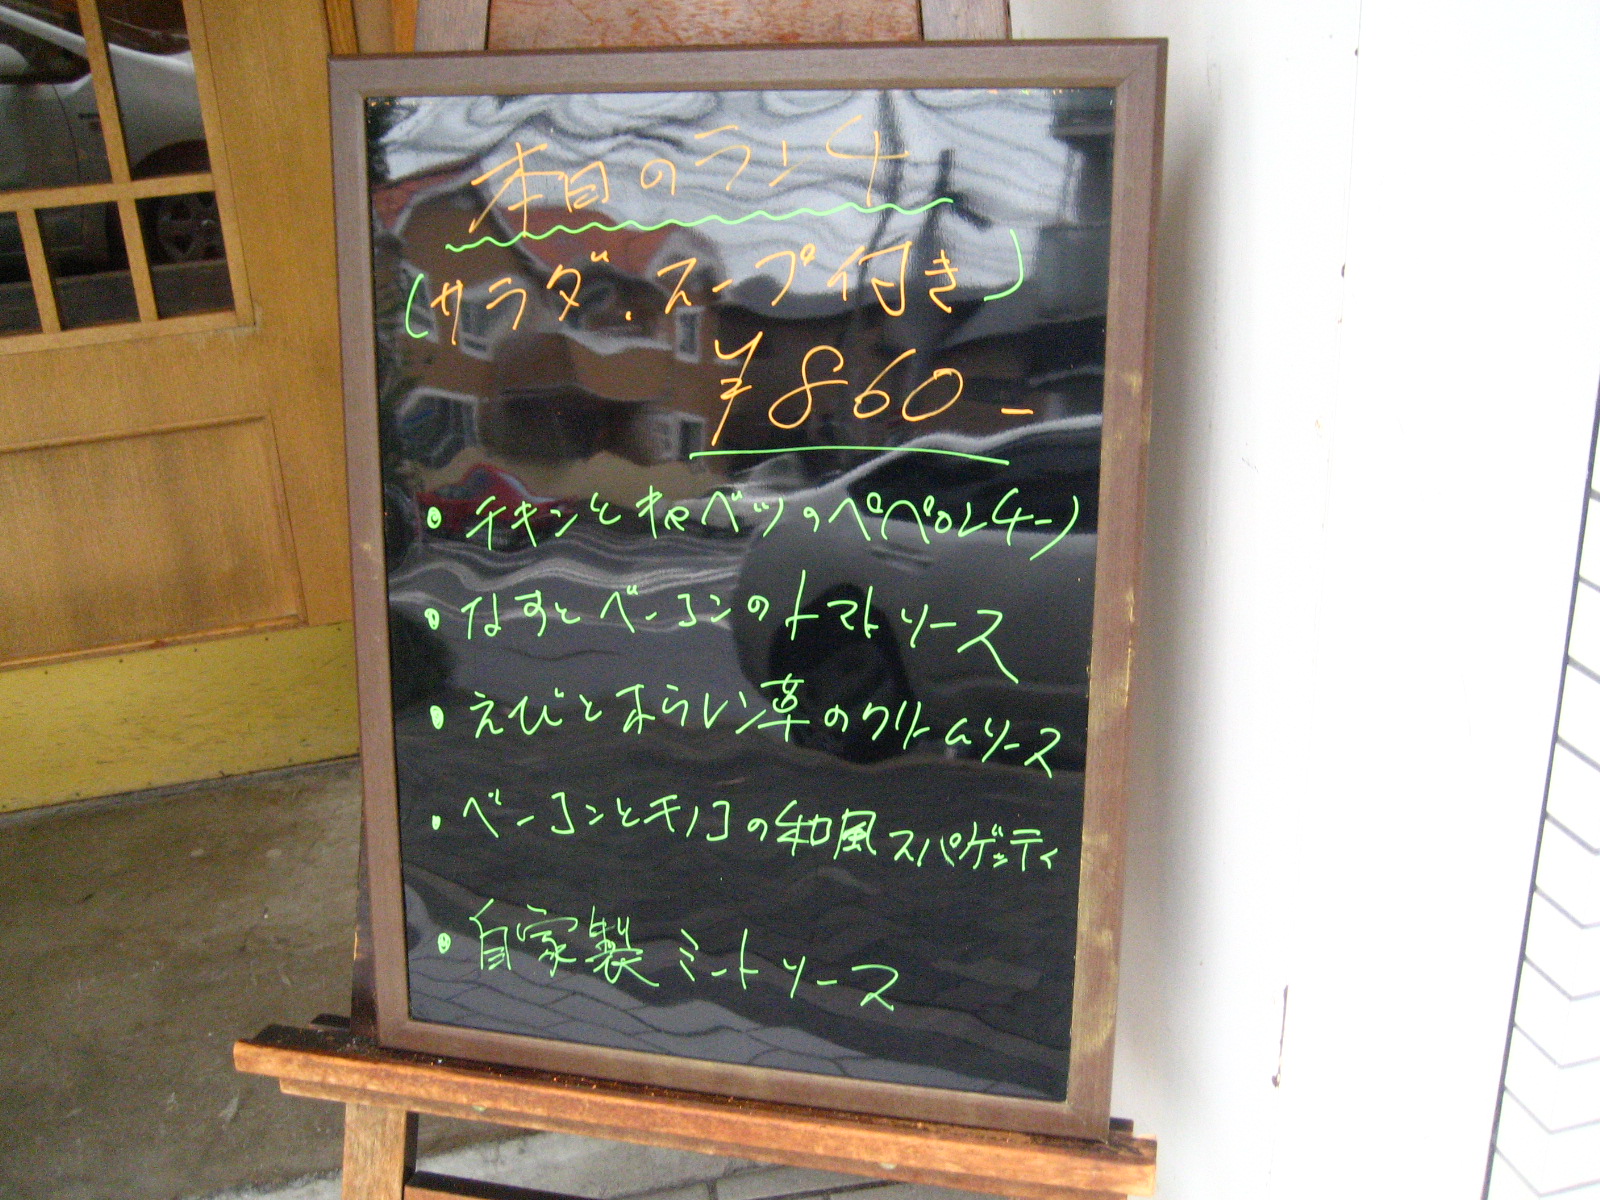 本日のランチ
(サラダ.スープ付き)
¥860-
・チキンとキャベツのペペロンチーノ
・なすとベーコンのトマトソース
・えびとホウレン草のクリームソース
・ベーコンとキノコの和風スパゲッティ
・自家製ミートソース